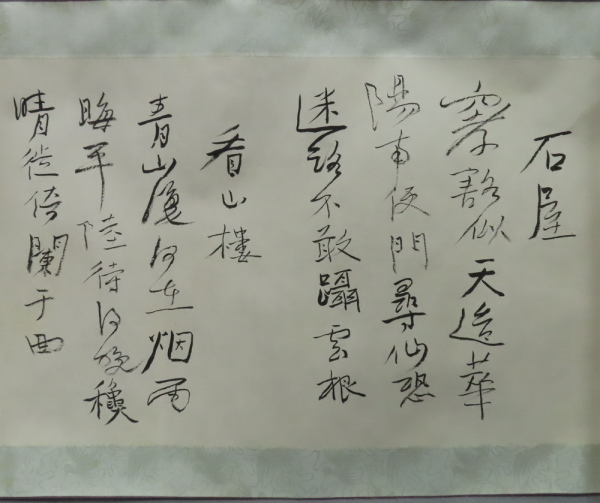 石屋
寥豁似天造華
陽南便門尋仙恐
迷路不敢躡雲根
看山樓
青山隱何在烟雨
晦平陸待得晚穐
晴徙倚闌干曲